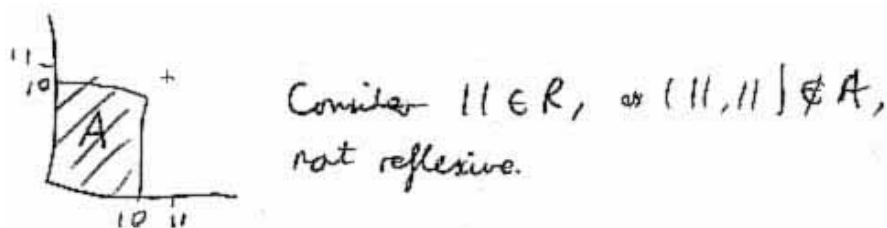 11
10
A
10 11
Consider 11 ∈ R, as (11, 11) ∉ A,
not reflexive.